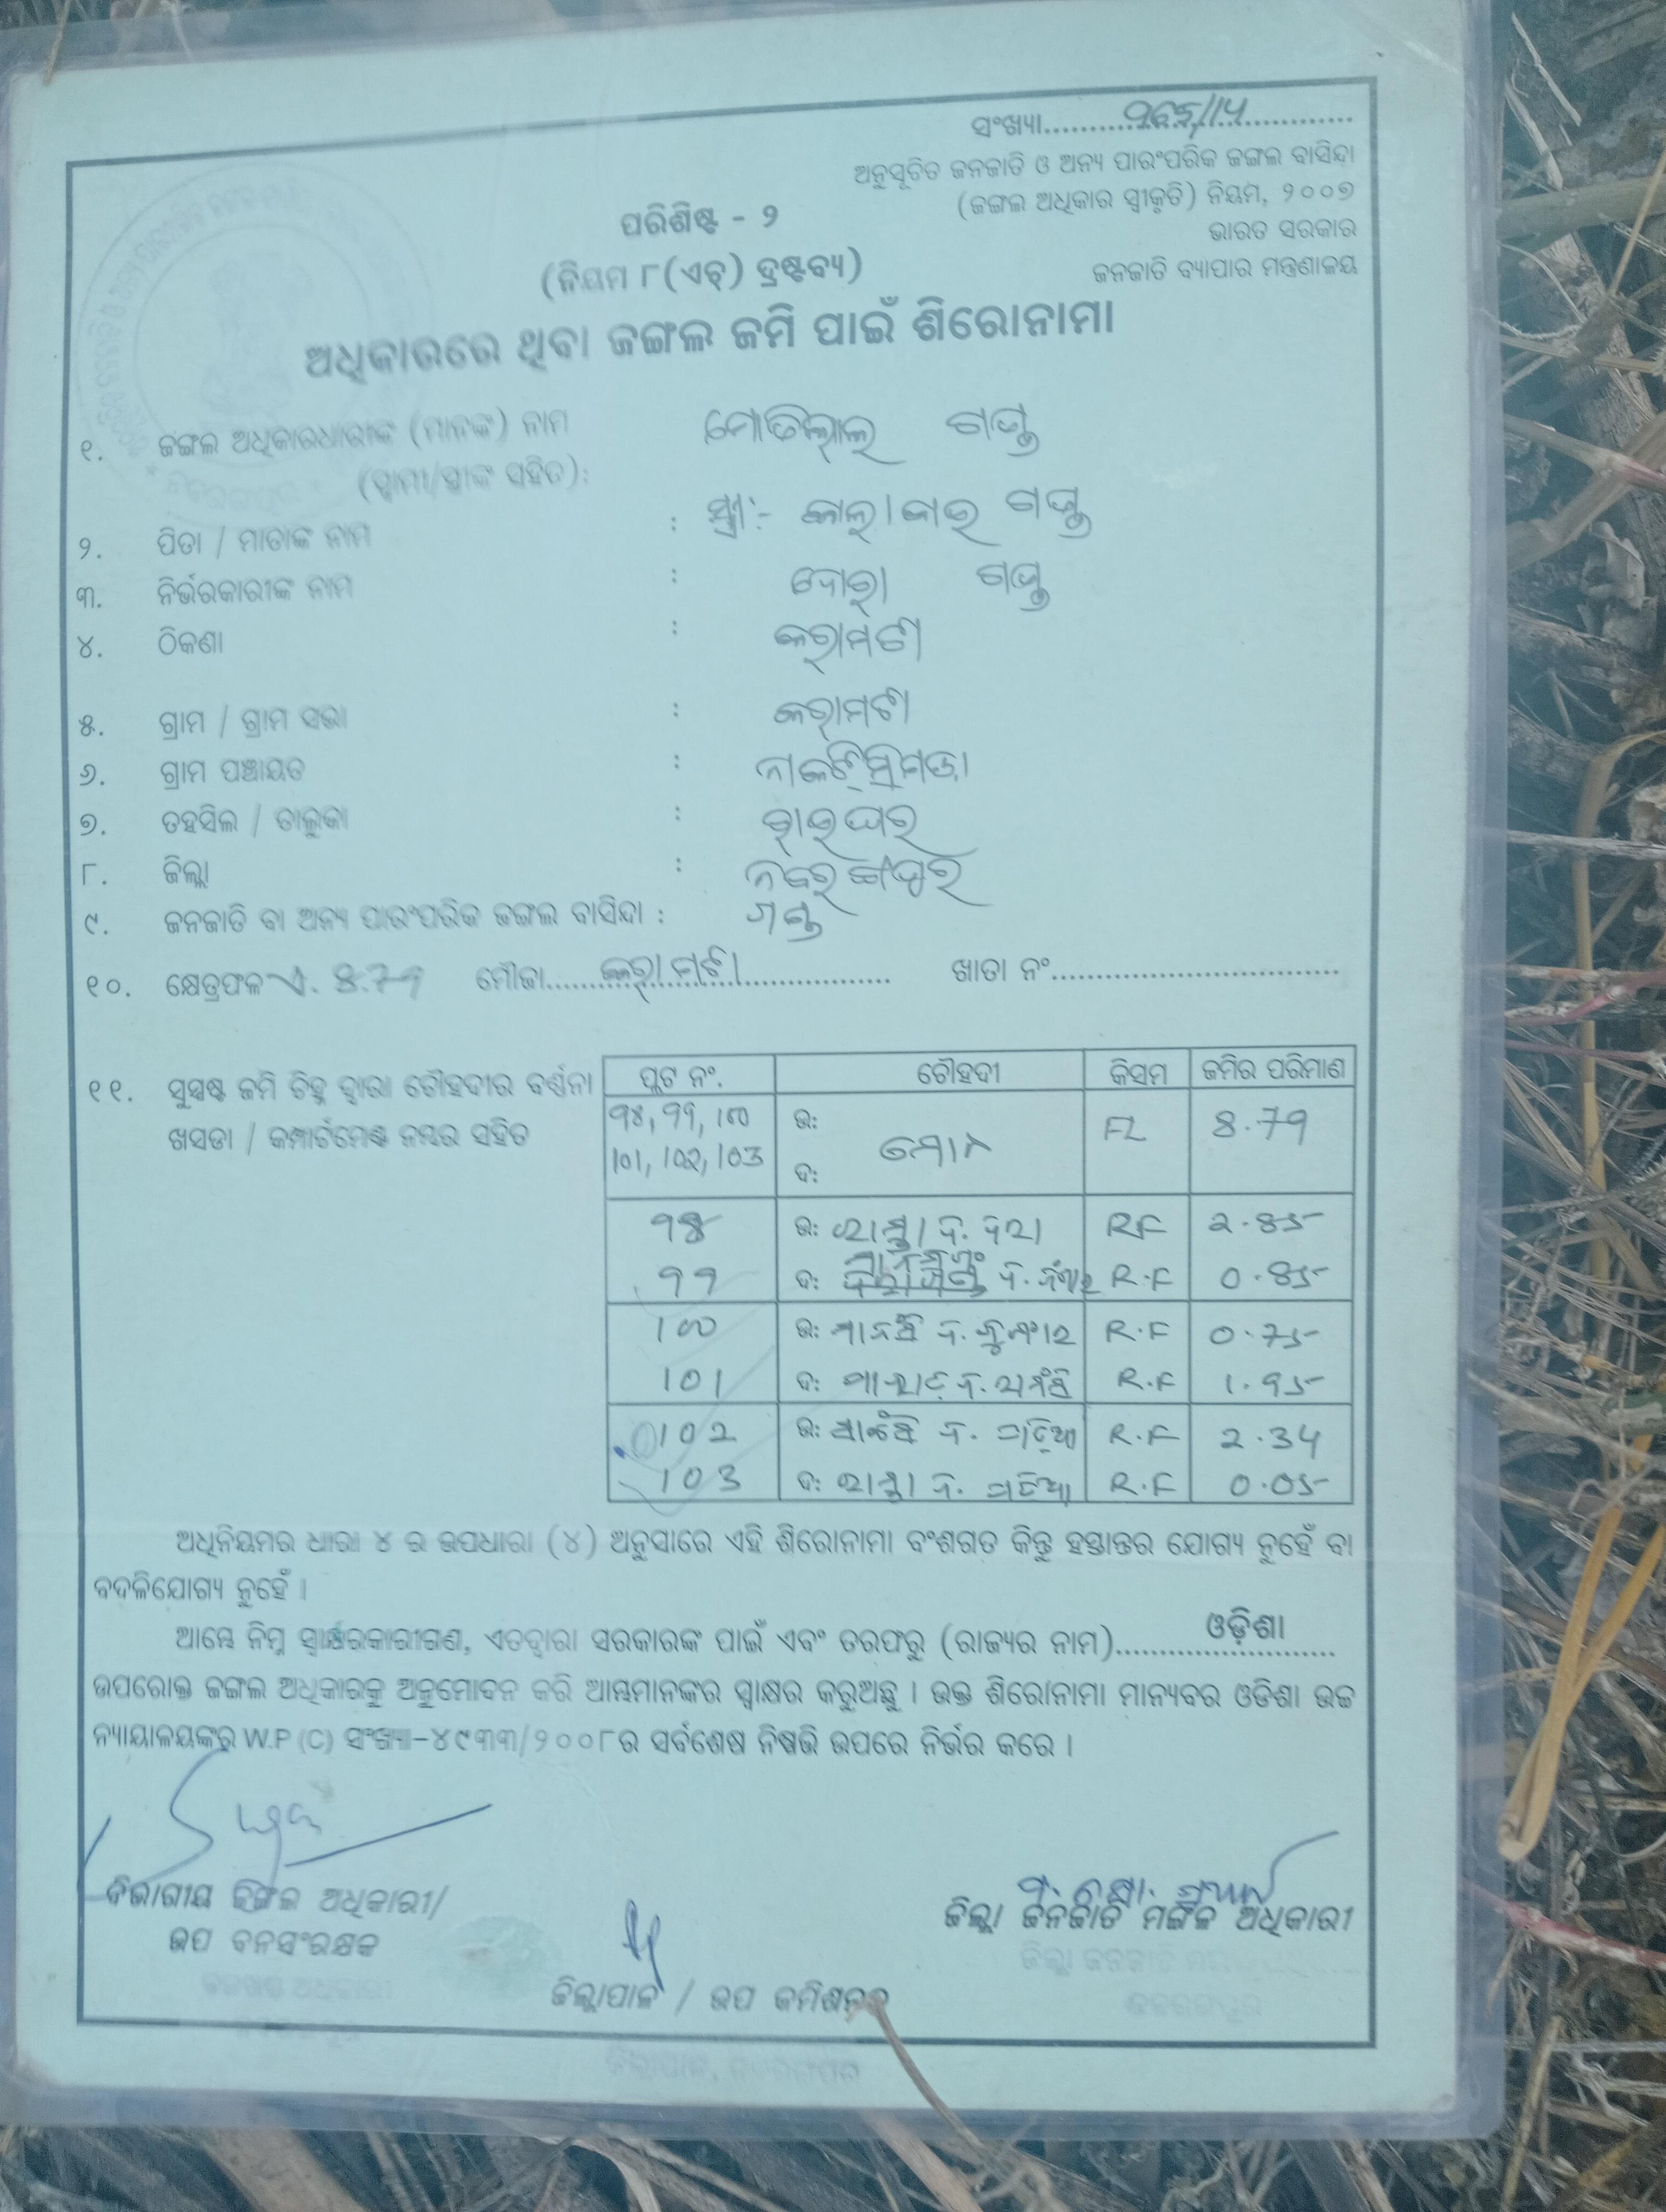 ସଂଖ୍ୟା
ଅନୁସୂଚିତ ଜନଜାତି ଓ ଅନ୍ୟ ପାରଂପରିକ ଜଙ୍ଗଲ ବାସିନ୍ଦା
(ଜଙ୍ଗଲ ଅଧିକାର ସ୍ୱୀକୃତି) ନିୟମ, ୨୦୦୭
ଭାରତ ସରକାର
ଜନଜାତି ବ୍ୟାପାର ମନ୍ତ୍ରଣାଳୟ
ପରିଶିଷ୍ଟ - ୨
(ନିୟମ ୮(ଏଚ୍) ଦ୍ରଷ୍ଟବ୍ୟ)
ଅଧିକାରରେ ଥିବା ଜଙ୍ଗଲ ଜମି ପାଇଁ ଶିରୋନାମା
୧. ଜଙ୍ଗଲ ଅଧିକାରଧାରୀଙ୍କ (ମାନଙ୍କ) ନାମ ମୋତିଲାଲ ଗଣ୍ଡ
(ସ୍ୱାମୀ/ସ୍ତ୍ରୀଙ୍କ ସହିତ):
୨. ପିତା / ମାତାଙ୍କ ନାମ : ସ୍ତ୍ରୀ:- ଗଣ୍ଡ
୩. ନିର୍ଭରକାରୀଙ୍କ ନାମ : ଗଣ୍ଡ
୪. ଠିକଣା : କରାମଟୀ
୫. ଗ୍ରାମ / ଗ୍ରାମ ସଭା : କରାମଟୀ
୬. ଗ୍ରାମ ପଞ୍ଚାୟତ :
୭. ତହସିଲ / ତାଲୁକା : ରାଇଘର
୮. ଜିଲ୍ଲା : ନବରଙ୍ଗପୁର
୯. ଜନଜାତି ବା ଅନ୍ୟ ପାରଂପରିକ ଜଙ୍ଗଲ ବାସିନ୍ଦା : ଗଣ୍ଡ
୧୦. କ୍ଷେତ୍ରଫଳ ଏ. 8.79 ମୌଜା କରାମଟୀ ଖାତା ନଂ
୧୧. ସୁସ୍ପଷ୍ଟ ଜମି ଚିହ୍ନ ଦ୍ୱାରା ଚୌହଦୀର ବର୍ଣ୍ଣନା
ଖସଡା / କମ୍ପାର୍ଟମେଣ୍ଟ ନମ୍ବର ସହିତ
ପ୍ଲଟ ନଂ. ଚୌହଦୀ କିସମ ଜମିର ପରିମାଣ
98, 99, 100 ଉ: FL 8.79
101, 102, 103 ଦ:
98 ଉ: ରାସ୍ତା ଦ. RF 2.85
99 ଦ: R.F 0.85
100 ଉ: R.F 0.75
101 ଦ: R.F 1.95
102 ଉ: R.F 2.34
103 ଦ: ରାସ୍ତା ଦ. R.F 0.05
ଅଧିନିୟମର ଧାରା ୪ ର ଉପଧାରା (୪) ଅନୁସାରେ ଏହି ଶିରୋନାମା ବଂଶଗତ କିନ୍ତୁ ହସ୍ତାନ୍ତର ଯୋଗ୍ୟ ନୁହେଁ ବା
ବଦଳିଯୋଗ୍ୟ ନୁହେଁ ।
ଆମ୍ଭେ ନିମ୍ନ ସ୍ୱାକ୍ଷରକାରୀଗଣ, ଏତଦ୍ୱାରା ସରକାରଙ୍କ ପାଇଁ ଏବଂ ତରଫରୁ (ରାଜ୍ୟର ନାମ) ଓଡ଼ିଶା
ଉପରୋକ୍ତ ଜଙ୍ଗଲ ଅଧିକାରକୁ ଅନୁମୋଦନ କରି ଆମ୍ଭମାନଙ୍କର ସ୍ୱାକ୍ଷର କରୁଅଛୁ । ଉକ୍ତ ଶିରୋନାମା ମାନ୍ୟବର ଓଡିଶା ଉଚ୍ଚ
ନ୍ୟାୟାଳୟଙ୍କର W.P (C) ସଂଖ୍ୟା-୪୯୩୩/୨୦୦୮ର ସର୍ବଶେଷ ନିଷ୍ପତ୍ତି ଉପରେ ନିର୍ଭର କରେ ।
ବିଭାଗୀୟ ଜଙ୍ଗଲ ଅଧିକାରୀ/
ଉପ ବନସଂରକ୍ଷକ
ଜିଲ୍ଲା ଜନଜାତି ମଙ୍ଗଳ ଅଧିକାରୀ
ଜିଲ୍ଲାପାଳ / ଉପ କମିଶନର